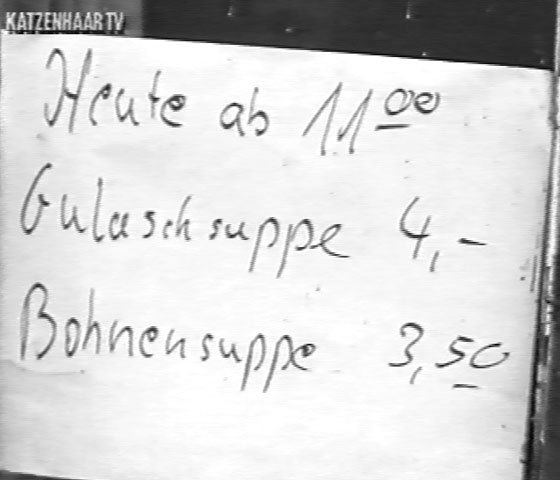 KATZENHAAR TV
Heute ab 11 00
Gulaschsuppe 4,-
Bohnensuppe 3,50